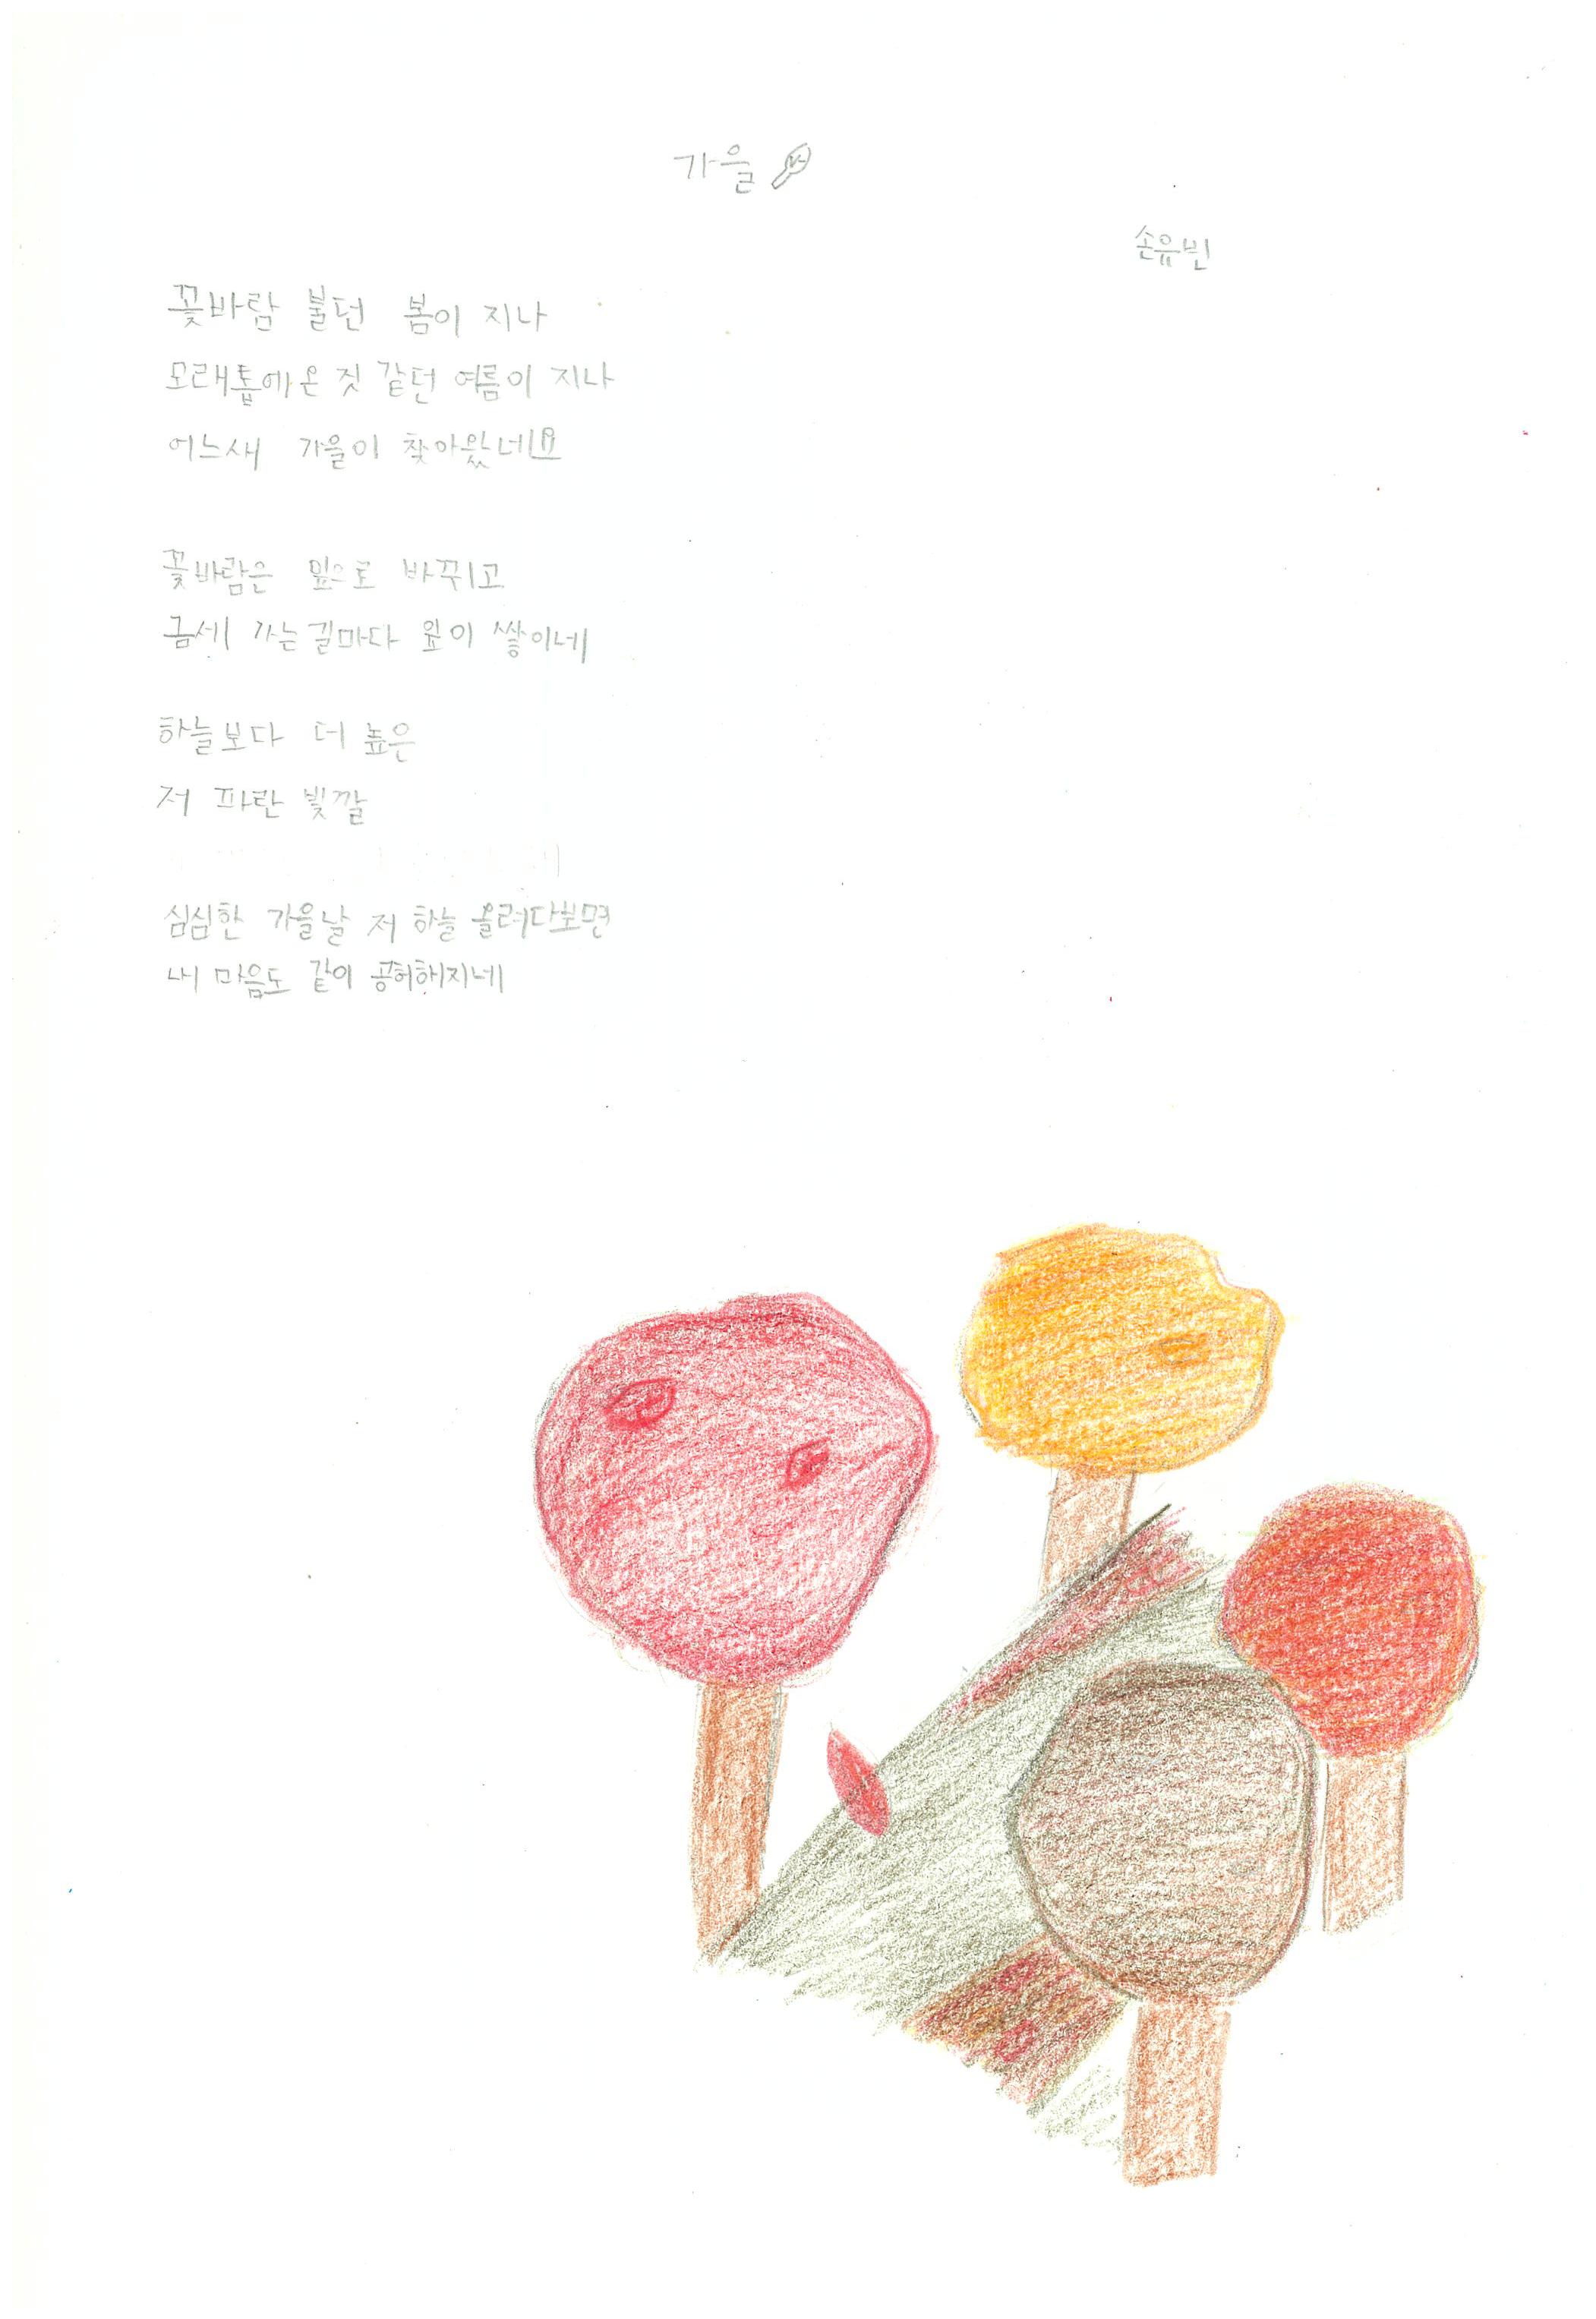 가을
손유빈
꽃바람 불던 봄이 지나
모래톱에 온 것 같던 여름이 지나
어느새 가을이 찾아왔네요
꽃바람은 잎으로 바뀌고
금세 가는길마다 잎이 쌓이네
하늘보다 더 높은
저 파란 빛깔
심심한 가을날 저 하늘 올려다보면
내 마음도 같이 공허해지네